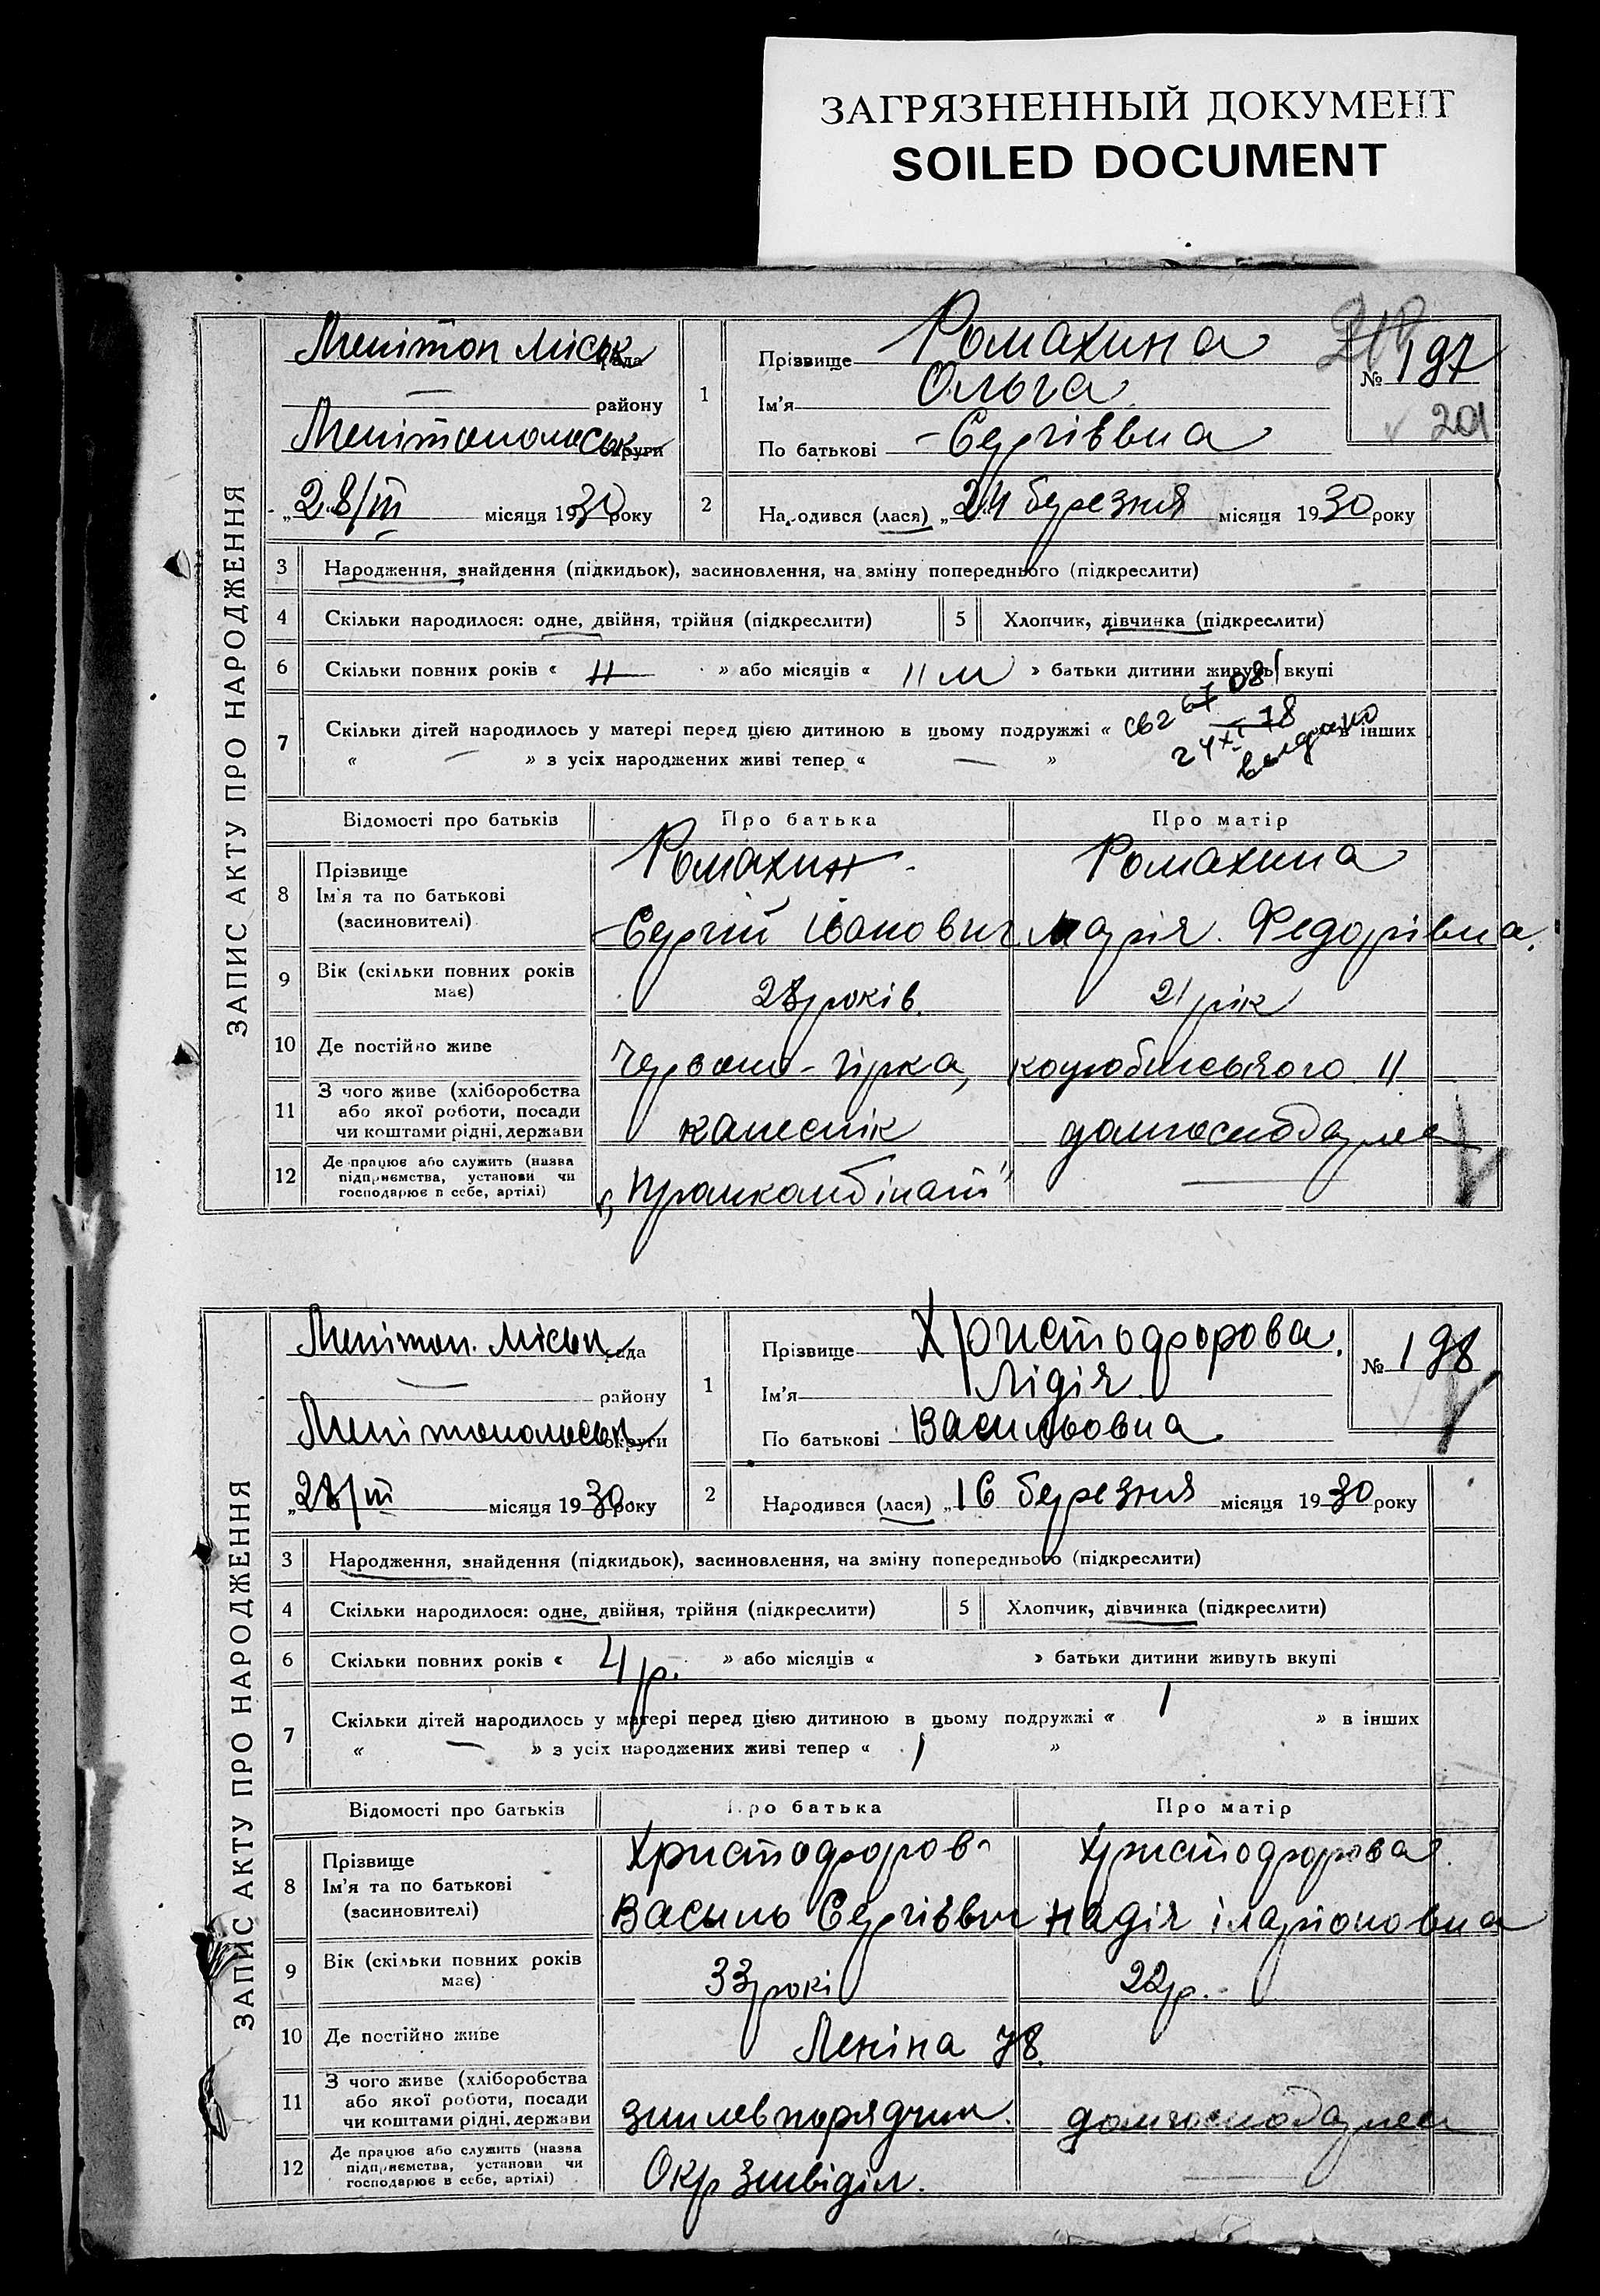 ЗАГРЯЗНЕННЫЙ ДОКУМЕНТ
SOILED DOCUMENT
ЗАПИС АКТУ ПРО НАРОДЖЕННЯ
Мелітоп міськ рада
— району
Мелітопольськ округи
„28/III місяця 1930 року
1
Прізвище Ромахина
Ім'я Ольга
По батькові Сергіївна
№ 197
201
2
Народився (лася) „24 березня місяця 1930 року
3 Народження, знайдення (підкидьок), засиновлення, на зміну попереднього (підкреслити)
4 Скільки народилося: одне, двійня, трійня (підкреслити)
5 Хлопчик, дівчинка (підкреслити)
6 Скільки повних років « 11 » або місяців « 11 м » батьки дитини живуть вкупі
7 Скільки дітей народилось у матері перед цією дитиною в цьому подружжі « в інших
« — » з усіх народжених живі тепер « — »
Відомості про батьків Про батька Про матір
8 Прізвище
Ім'я та по батькові
(засиновителі)
Ромахин
Сергій Іванович
Ромахина
Марія Федорівна.
9 Вік (скільки повних років
має)
28 років.
21 рік
10 Де постійно живе
Червона-гірка, Коцюбинського 11
11 З чого живе (хліборобства
або якої роботи, посади
чи коштами рідні, держави
домгосподарка
12 Де працює або служить (назва
підприємства, установи чи
господарює в себе, артілі)
„Промкомбінат"
—
ЗАПИС АКТУ ПРО НАРОДЖЕННЯ
Мелітоп. міськ рада
— району
Мелітопольськ округи
„28/III місяця 1930 року
1
Прізвище Христофорова.
Ім'я Лідія
По батькові Васильовна
№ 198
2
Народився (лася) „16 березня місяця 1930 року
3 Народження, знайдення (підкидьок), засиновлення, на зміну попереднього (підкреслити)
4 Скільки народилося: одне, двійня, трійня (підкреслити)
5 Хлопчик, дівчинка (підкреслити)
6 Скільки повних років « 4 р. » або місяців « » батьки дитини живуть вкупі
7 Скільки дітей народилось у матері перед цією дитиною в цьому подружжі « 1 » в інших
« — » з усіх народжених живі тепер « 1 »
Відомості про батьків Про батька Про матір
8 Прізвище
Ім'я та по батькові
(засиновителі)
Христофоров
Василь Сергіївич
Христофорова
Надія Іларіоновна
9 Вік (скільки повних років
має)
33 рокі
22 р.
10 Де постійно живе
Леніна 78.
11 З чого живе (хліборобства
або якої роботи, посади
чи коштами рідні, держави
землевпорядчик.
домгосподарка
12 Де працює або служить (назва
підприємства, установи чи
господарює в себе, артілі)
Окрземвіділ.
—